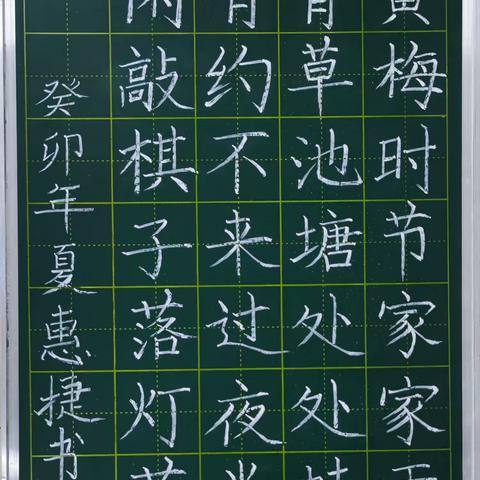 黄梅时节家家雨
青草池塘处处蛙
有约不来过夜半
闲敲棋子落灯花
癸卯年夏惠捷书